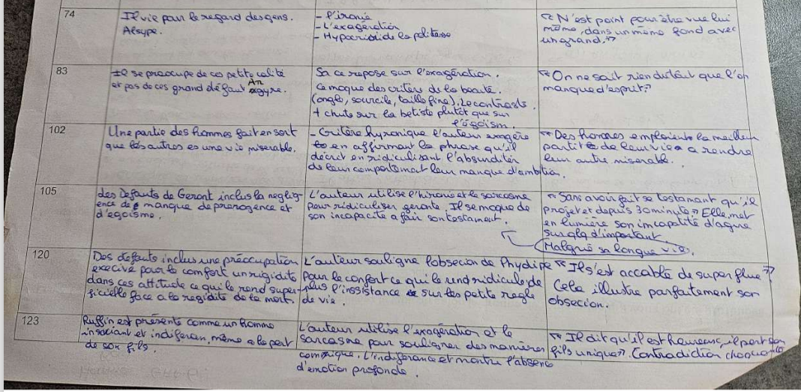 74
Il vie pour le regard des gens.
Absype.
- l'ironie
- L'exagération
- Hypocrisie de la politesse
"N'est point pour être vue lui
même, dans un même fond avec
un grand."
83
Il se préocupe de ces petite calité
et pas de ces grand défaut Argyre.
Sa ce repose sur l'exagération.
Ce moque des critère de la beauté.
(ongle, sourcile, taille fine). Le contraste.
+ chuts sur la betiste plutôt que sur
l'égoism.
"On ne sait rien du tout que l'on
manque d'esprit."
102
Une partie des hommes fait en sort
que les autres es une vie miserable.
- Critère hyronique l'auteur exagère
en affirmant les phrase qu'il
décrit en ridiculisant l'absurditer
de leur comportement leur manque d'ambition.
"Des hommes emploient la meilleur
partie de leur vie a rendre
leur autre miserable.
105
les Défauts de Geront inclus la neglig
ence de manque de prerogence et
d'egoisme.
L'auteur utilise l'hironie et le sarcasme
pour ridiculiser geronte. Il se moque de
son incapacite a fair son testament.
"Sans avoir fait se testament qu'il
projet et depuis 30 minute" Elle met
en lumière son incapatité d'agire
sur qlq d'important
Malgré sa longue vie.
120
Des défauts inclus une préoccupation
execivé pour le comfort un rigidite
dans ces attitude ce qui le rend super-
ficielle face a la regidite de la mort.
L'auteur souligne l'obsecion de Phydipe
pour le confort ce qui le rend ridicule de
plus l'inssistance sur les petite regle
de vie.
"Il s'est accablé de superflue"
Cela illustre parfaitement son
obsecion.
123
Ruffin est présenté comme un homme
insouciant et indiferan, même a la port
de son fils.
L'auteur utilise l'exagération et le
sarcasme pour souligner des manières
comique. L'indiferance et montre l'absence
d'emotion profonde.
"Il dit qu'il est heureux, il pert son
fils unique". Contradiction choquante